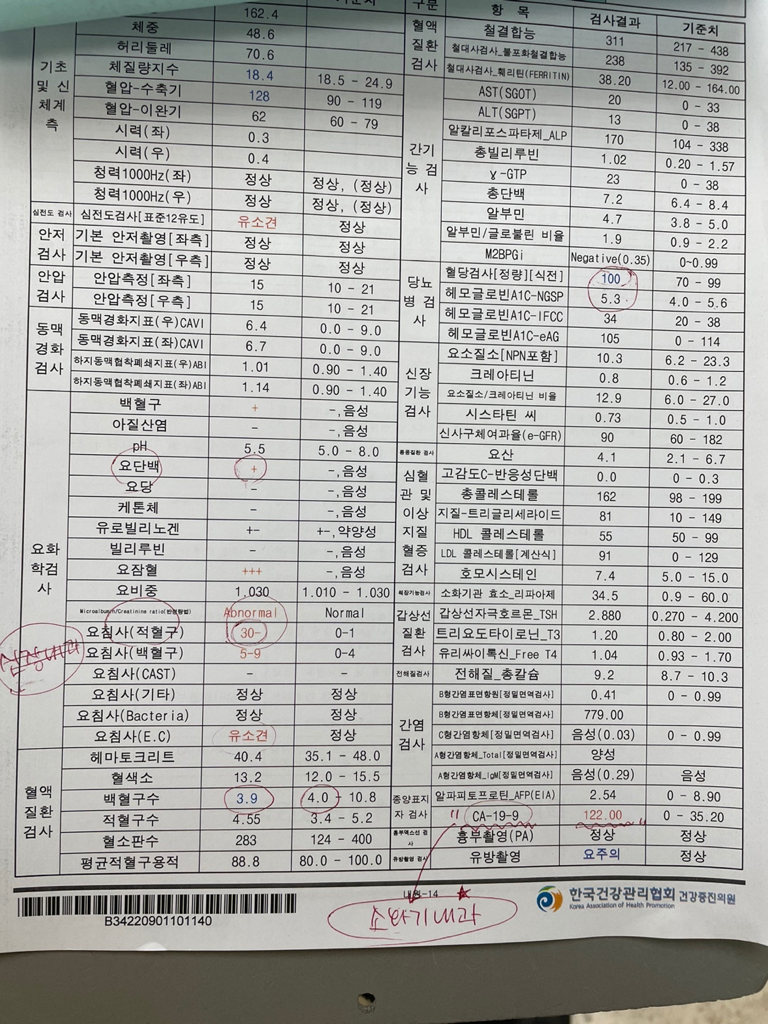 구분 항 목 검사결과 기준치
162.4
체중 48.6
허리둘레 70.6
체질량지수 18.4 18.5 - 24.9
혈압-수축기 128 90 - 119
혈압-이완기 62 60 - 79
시력(좌) 0.3
시력(우) 0.4
청력1000Hz(좌) 정상 정상, (정상)
청력1000Hz(우) 정상 정상, (정상)
기초 및 신체계측
심전도 검사 심전도검사[표준12유도] 유소견 정상
안저검사 기본 안저촬영[좌측] 정상 정상
기본 안저촬영[우측] 정상 정상
안압검사 안압측정[좌측] 15 10 - 21
안압측정[우측] 15 10 - 21
동맥경화검사 동맥경화지표(우)CAVI 6.4 0.0 - 9.0
동맥경화지표(좌)CAVI 6.7 0.0 - 9.0
하지동맥협착폐쇄지표(우)ABI 1.01 0.90 - 1.40
하지동맥협착폐쇄지표(좌)ABI 1.14 0.90 - 1.40
요화학검사 백혈구 + -,음성
아질산염 - -,음성
pH 5.5 5.0 - 8.0
요단백 + -,음성
요당 - -,음성
케톤체 - -,음성
유로빌리노겐 +- +-,약양성
빌리루빈 - -,음성
요잠혈 +++ -,음성
요비중 1.030 1.010 - 1.030
Microalbumin/Creatinine ratio(반정량법) Abnormal Normal
요침사(적혈구) 30- 0-1
요침사(백혈구) 5-9 0-4
요침사(CAST) - -
요침사(기타) 정상 정상
요침사(Bacteria) 정상 정상
요침사(E.C) 유소견 정상
신장내과
혈액질환검사 헤마토크리트 40.4 35.1 - 48.0
혈색소 13.2 12.0 - 15.5
백혈구수 3.9 4.0 - 10.8
적혈구수 4.55 3.4 - 5.2
혈소판수 283 124 - 400
평균적혈구용적 88.8 80.0 - 100.0
혈액질환검사 철결합능 311 217 - 438
철대사검사_불포화철결합능 238 135 - 392
철대사검사_훼리틴(FERRITIN) 38.20 12.00 - 164.00
간기능 검사 AST(SGOT) 20 0 - 33
ALT(SGPT) 13 0 - 38
알칼리포스파타제_ALP 170 104 - 338
총빌리루빈 1.02 0.20 - 1.57
γ-GTP 23 0 - 38
총단백 7.2 6.4 - 8.4
알부민 4.7 3.8 - 5.0
알부민/글로불린 비율 1.9 0.9 - 2.2
M2BPGi Negative(0.35) 0~0.99
당뇨병 검사 혈당검사[정량][식전] 100 70 - 99
헤모글로빈A1C-NGSP 5.3 4.0 - 5.6
헤모글로빈A1C-IFCC 34 20 - 38
헤모글로빈A1C-eAG 105 0 - 114
신장기능검사 요소질소[NPN포함] 10.3 6.2 - 23.3
크레아티닌 0.8 0.6 - 1.2
요소질소/크레아티닌 비율 12.9 6.0 - 27.0
시스타틴 씨 0.73 0.5 - 1.0
신사구체여과율(e-GFR) 90 60 - 182
통풍질환 검사 요산 4.1 2.1 - 6.7
심혈관 및 이상지질혈증검사 고감도C-반응성단백 0.0 0 - 0.3
총콜레스테롤 162 98 - 199
지질-트리글리세라이드 81 10 - 149
HDL 콜레스테롤 55 50 - 99
LDL 콜레스테롤[계산식] 91 0 - 129
호모시스테인 7.4 5.0 - 15.0
췌장기능검사 소화기관 효소_리파아제 34.5 0.9 - 60.0
갑상선질환검사 갑상선자극호르몬_TSH 2.880 0.270 - 4.200
트리요도타이로닌_T3 1.20 0.80 - 2.00
유리싸이록신_Free T4 1.04 0.93 - 1.70
전해질검사 전해질_총칼슘 9.2 8.7 - 10.3
간염검사 B형간염표면항원[정밀면역검사] 0.41 0 - 0.99
B형간염표면항체[정밀면역검사] 779.00
C형간염항체[정밀면역검사] 음성(0.03) 0 - 0.99
A형간염항체_Total[정밀면역검사] 양성
A형간염항체_IgM[정밀면역검사] 음성(0.29) 음성
종양표지자 검사 알파피토프로틴_AFP(EIA) 2.54 0 - 8.90
" CA-19-9 122.00 " 0 - 35.20
흉부엑스선 검사 흉부촬영(PA) 정상 정상
유방촬영 검사 유방촬영 요주의 정상
소화기내과
B34220901101140
한국건강관리협회 건강증진의원
Korea Association of Health Promotion